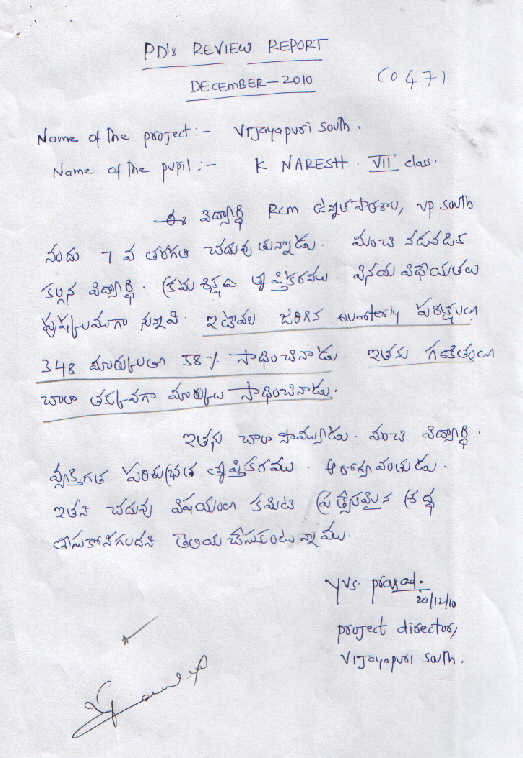 PD's REVIEW REPORT
DECEMBER-2010
(047)
Name of the project:- Vijayapuri South.
Name of the pupil:- K NARESH. VII class.
ఈ విద్యార్థి Rcm ఉన్నత పాఠశాల, VP. South
నందు 7 వ తరగతి చదువుతున్నాడు. మంచి నడవడిక
కల్గిన విద్యార్థి. క్రమశిక్షణ తృప్తికరము వినయ విధేయతలు
పుష్కలముగా ఉన్నవి. ఇటీవల జరిగిన quarterly పరీక్షలలో
348 మార్కులతో 58% సాధించినాడు ఇతను గణితంలో
చాలా తక్కువగా మార్కులు సాధించినాడు.
ఇతను చాలా సౌమ్యుడు. మంచి విద్యార్థి.
వ్యక్తిగత పరిశుభ్రత తృప్తికరము. ఆరోగ్యవంతుడు.
ఇతని చదువు విషయంలో కమిటి ప్రత్యేకమైన శ్రద్ధ
తీసుకోనిగలదని తెలియ చేసుకుంటున్నాము.
YVS. Prasad.
20/12/10
project director,
Vijayapuri South.